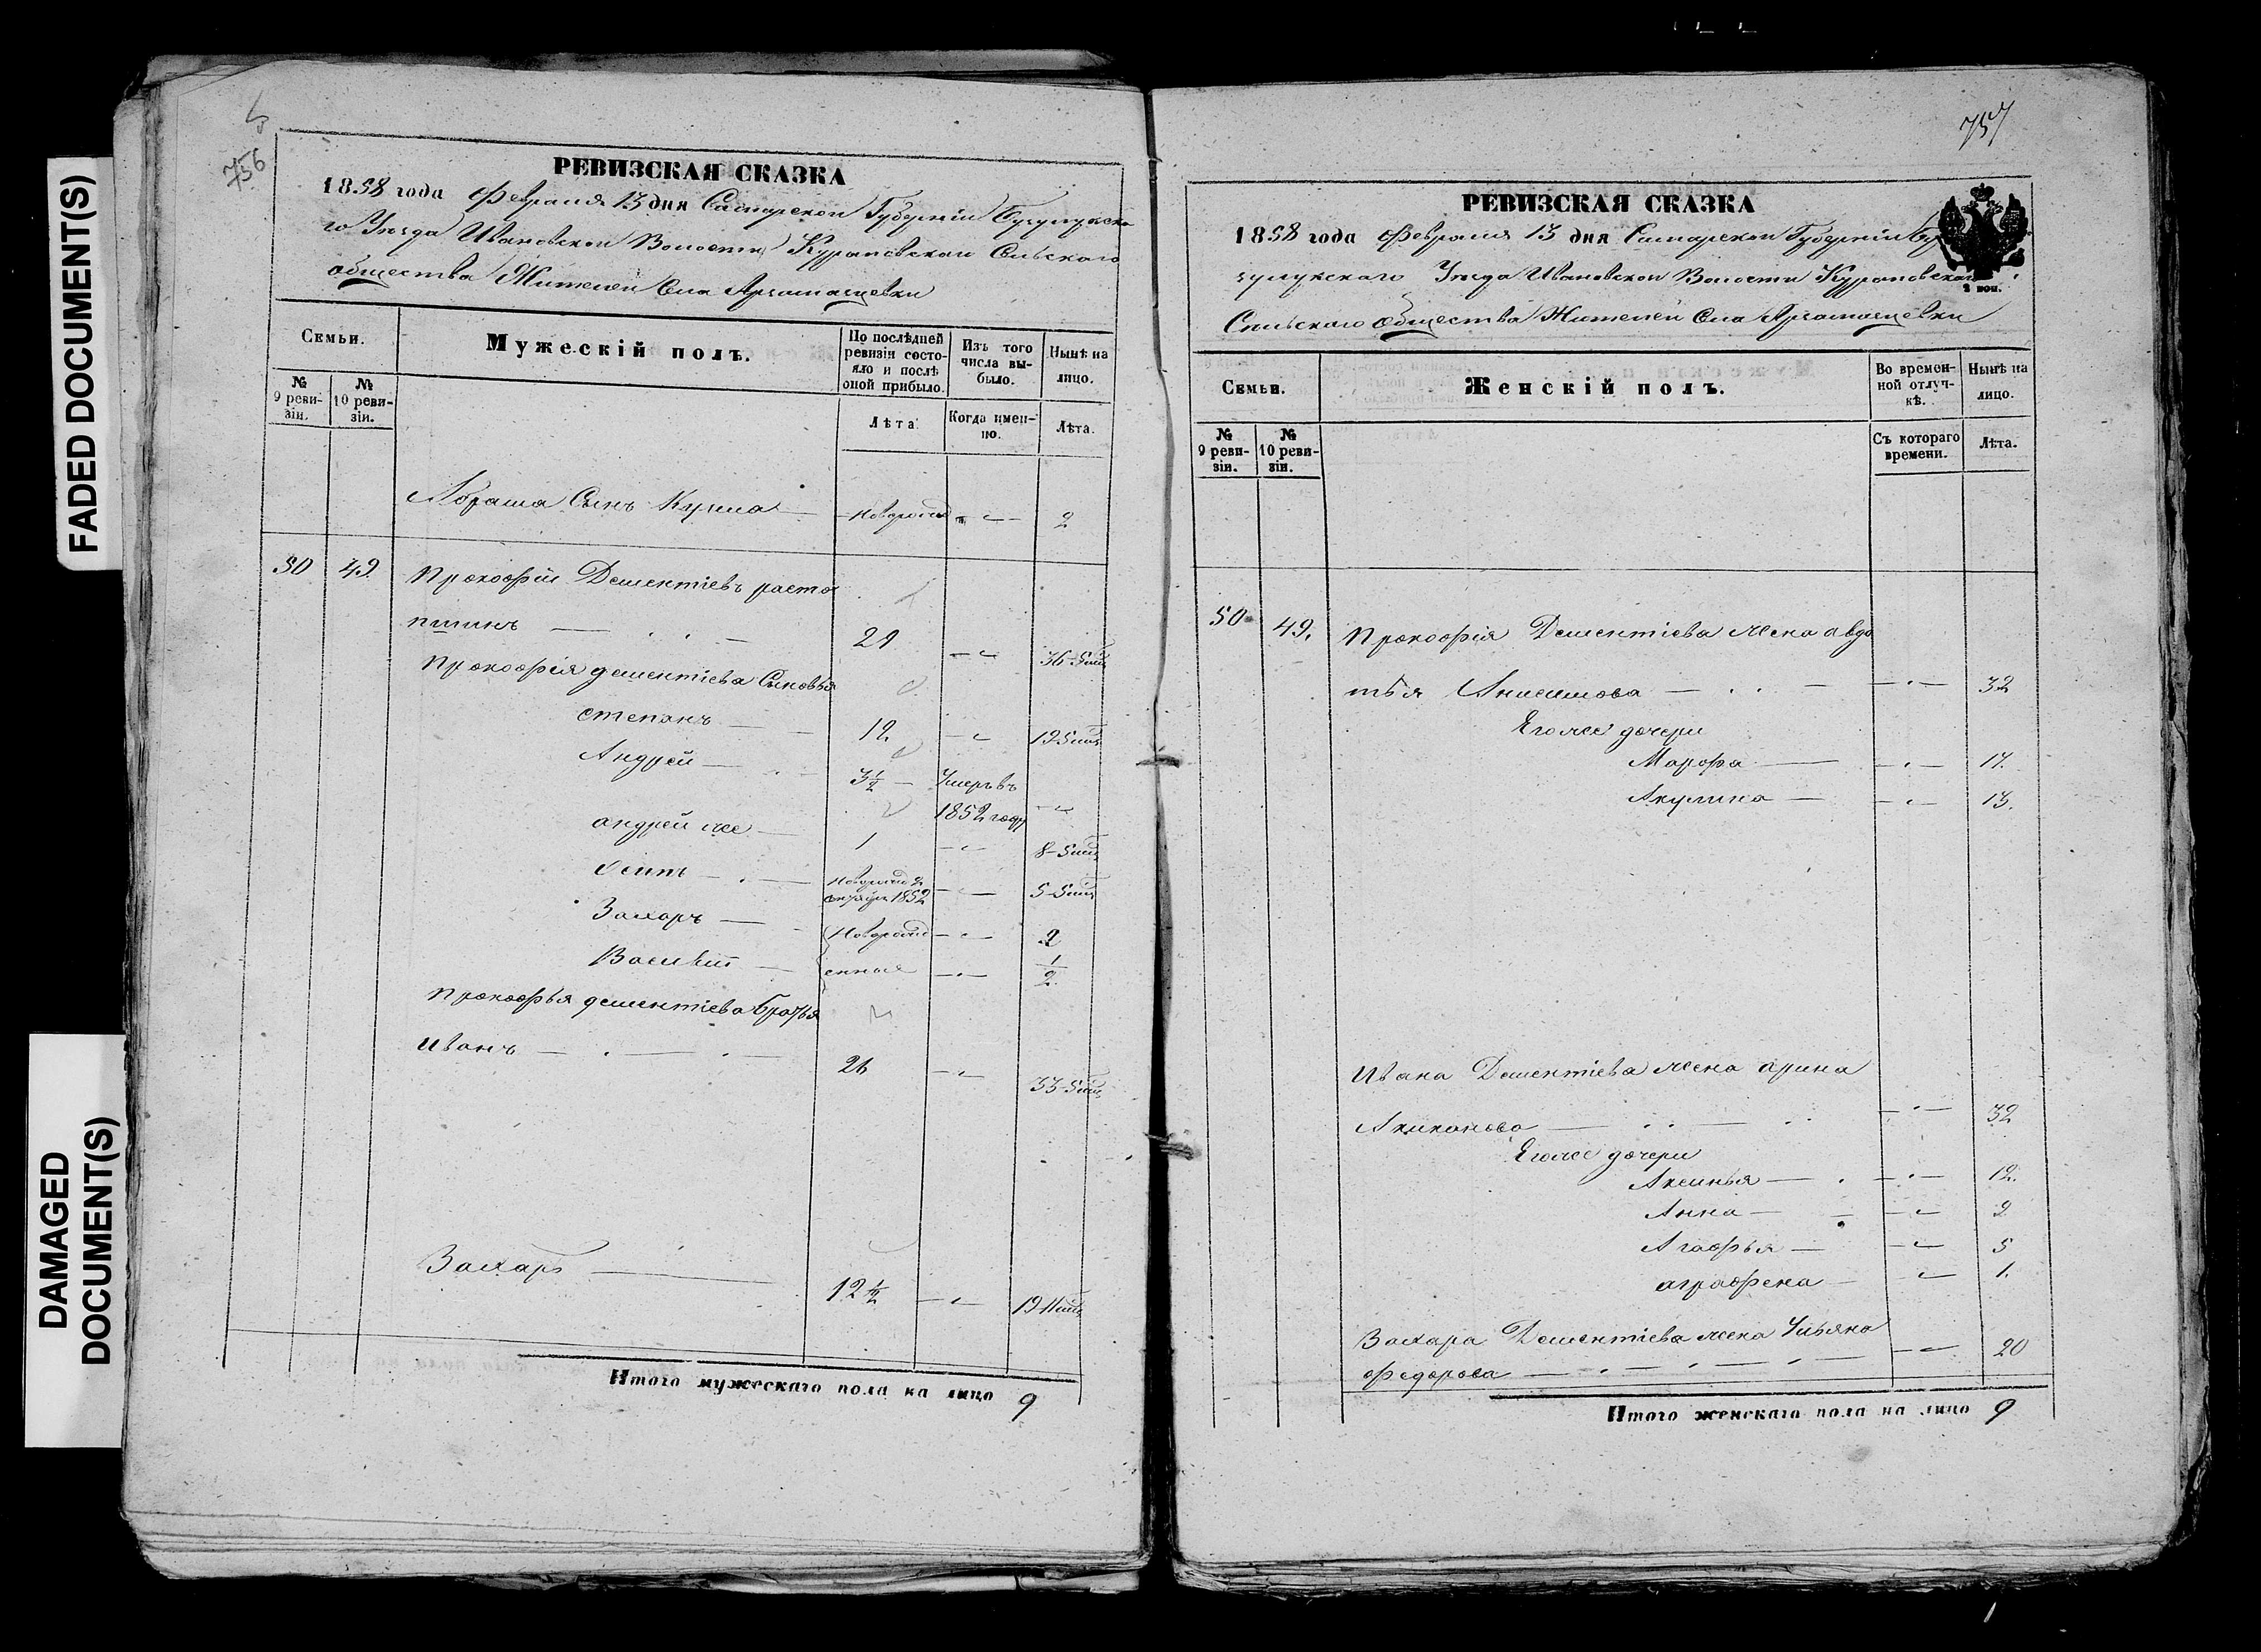 FADED DOCUMENT(S)
DAMAGED
DOCUMENT(S)
756
РЕВИЗСКАЯ СКАЗКА
1858 года Февраля 13 дня Самарской Губерніи Бузулукска
го Уезда Ивановской Волости Курановскаго Сельскаго
общества Жителей Села
Семьи.
Мужескій полъ.
По послѣдней ревизіи состояло и послѣ оной прибыло.
Изъ того числа выбыло.
Нынѣ на лицо.
№ 9 ревизіи.
№ 10 ревизіи.
Лѣта.
Когда именно.
Лѣта.
Абрама Сынъ Кузма — новорожд — 2
50 49. Прокофій Дементіевъ расто
пшинъ — 29 — 36-5 мц
Прокофія дементіева Сыновья
степанъ — 12. — 19-5 мц
Андрей — 3½ — Умеръ въ
1852 году —
андрей же — 1 — 8-5 мц
Осипъ — новорожд 1852 — 5-5 мц
Захаръ — Новорожд — 2
Василій — енныя — ½
прокофья дементіева братья
Иванъ — 26 — 33-5 мц
Захаръ — 12½ — 19-11 мц
Итого мужескаго пола на лицо 9
757
РЕВИЗСКАЯ СКАЗКА
1858 года Февраля 13 дня Самарской Губерніи Бу
зулукскаго Уезда Ивановской Волости Курановскаго
2 коп.
Сельскаго общества Жителей Села
Семьи.
Женскій полъ.
Во временной отлучкѣ.
Нынѣ на лицо.
№ 9 ревизіи.
№ 10 ревизіи.
Съ котораго времени.
Лѣта.
50 49. Прокофія Дементіева жена авдо
тья Анисимова — 32
Его же дочери
Марфа — 17.
Акулина — 13.
Ивана Дементіева жена арина
— 32
Его же дочери
Аксинья — 12.
Анна — 9
Агафья — 5
аграфена — 1.
Захара Дементіева жена Ульяна
федорова — 20
Итого женскаго пола на лицо 9